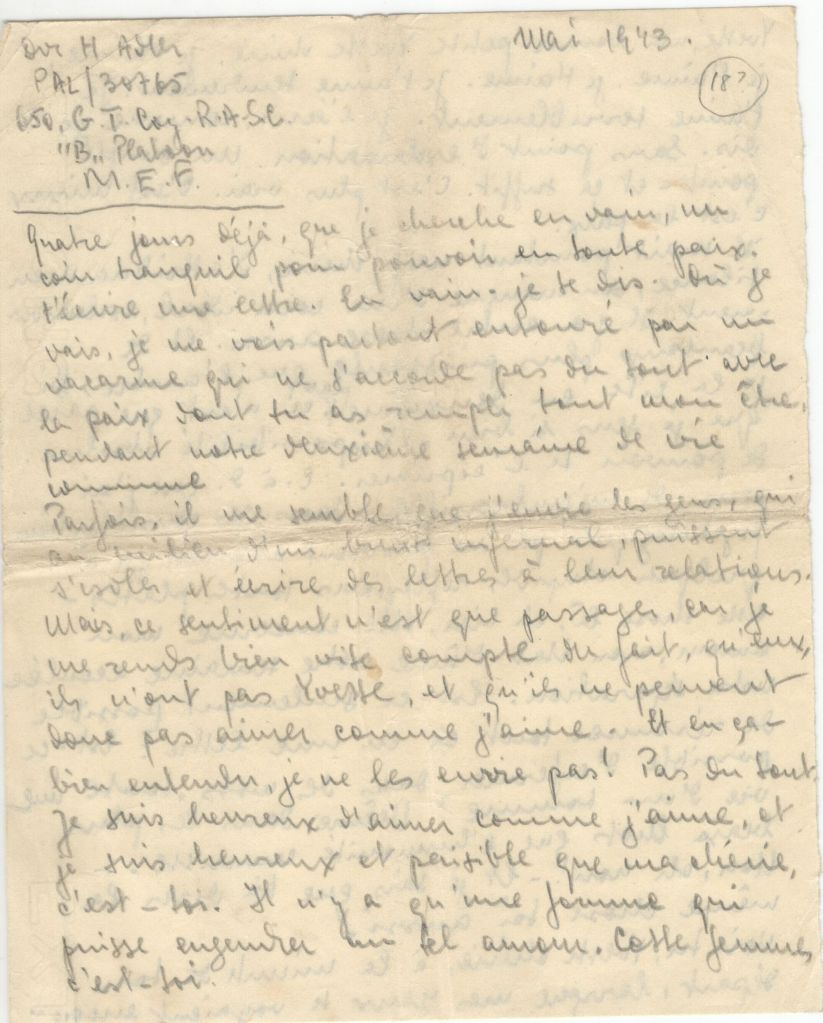 Dvr H. Adler
PAL/30765
650, G.T Coy. R.A.S.C.
"B" Platoon
M.E.F.
Mai 1943.
18?
Quatre jours déjà, que je cherche en vain, un
coin tranquil pour pouvoir en toute paix.
t'écrire une lettre. En vain. je te dis. Où je
vais, je me vois partout entouré par un
vacarme qui ne s'accorde pas du tout avec
la paix dont tu as rempli tout mon être,
pendant notre deuxième semaine de vie
commune
Parfois, il me semble que j'envie les gens, qui
au milieu d'un bruit infernal, puissent
s'isoler et écrire des lettres à leur relations.
Mais, ce sentiment n'est que passager, car je
me rends bien vite compte du fait, qu'eux,
ils n'ont pas Yvette, et qu'ils ne peuvent
donc pas aimer comme j'aime. Et en ça-
bien entendu, je ne les envie pas! Pas du tout.
Je suis heureux d'aimer comme j'aime, et
je suis heureux et paisible que ma chérie,
c'est-toi. Il n'y a qu'une femme qui
puisse engendrer un tel amour. Cette femme,
c'est-toi.